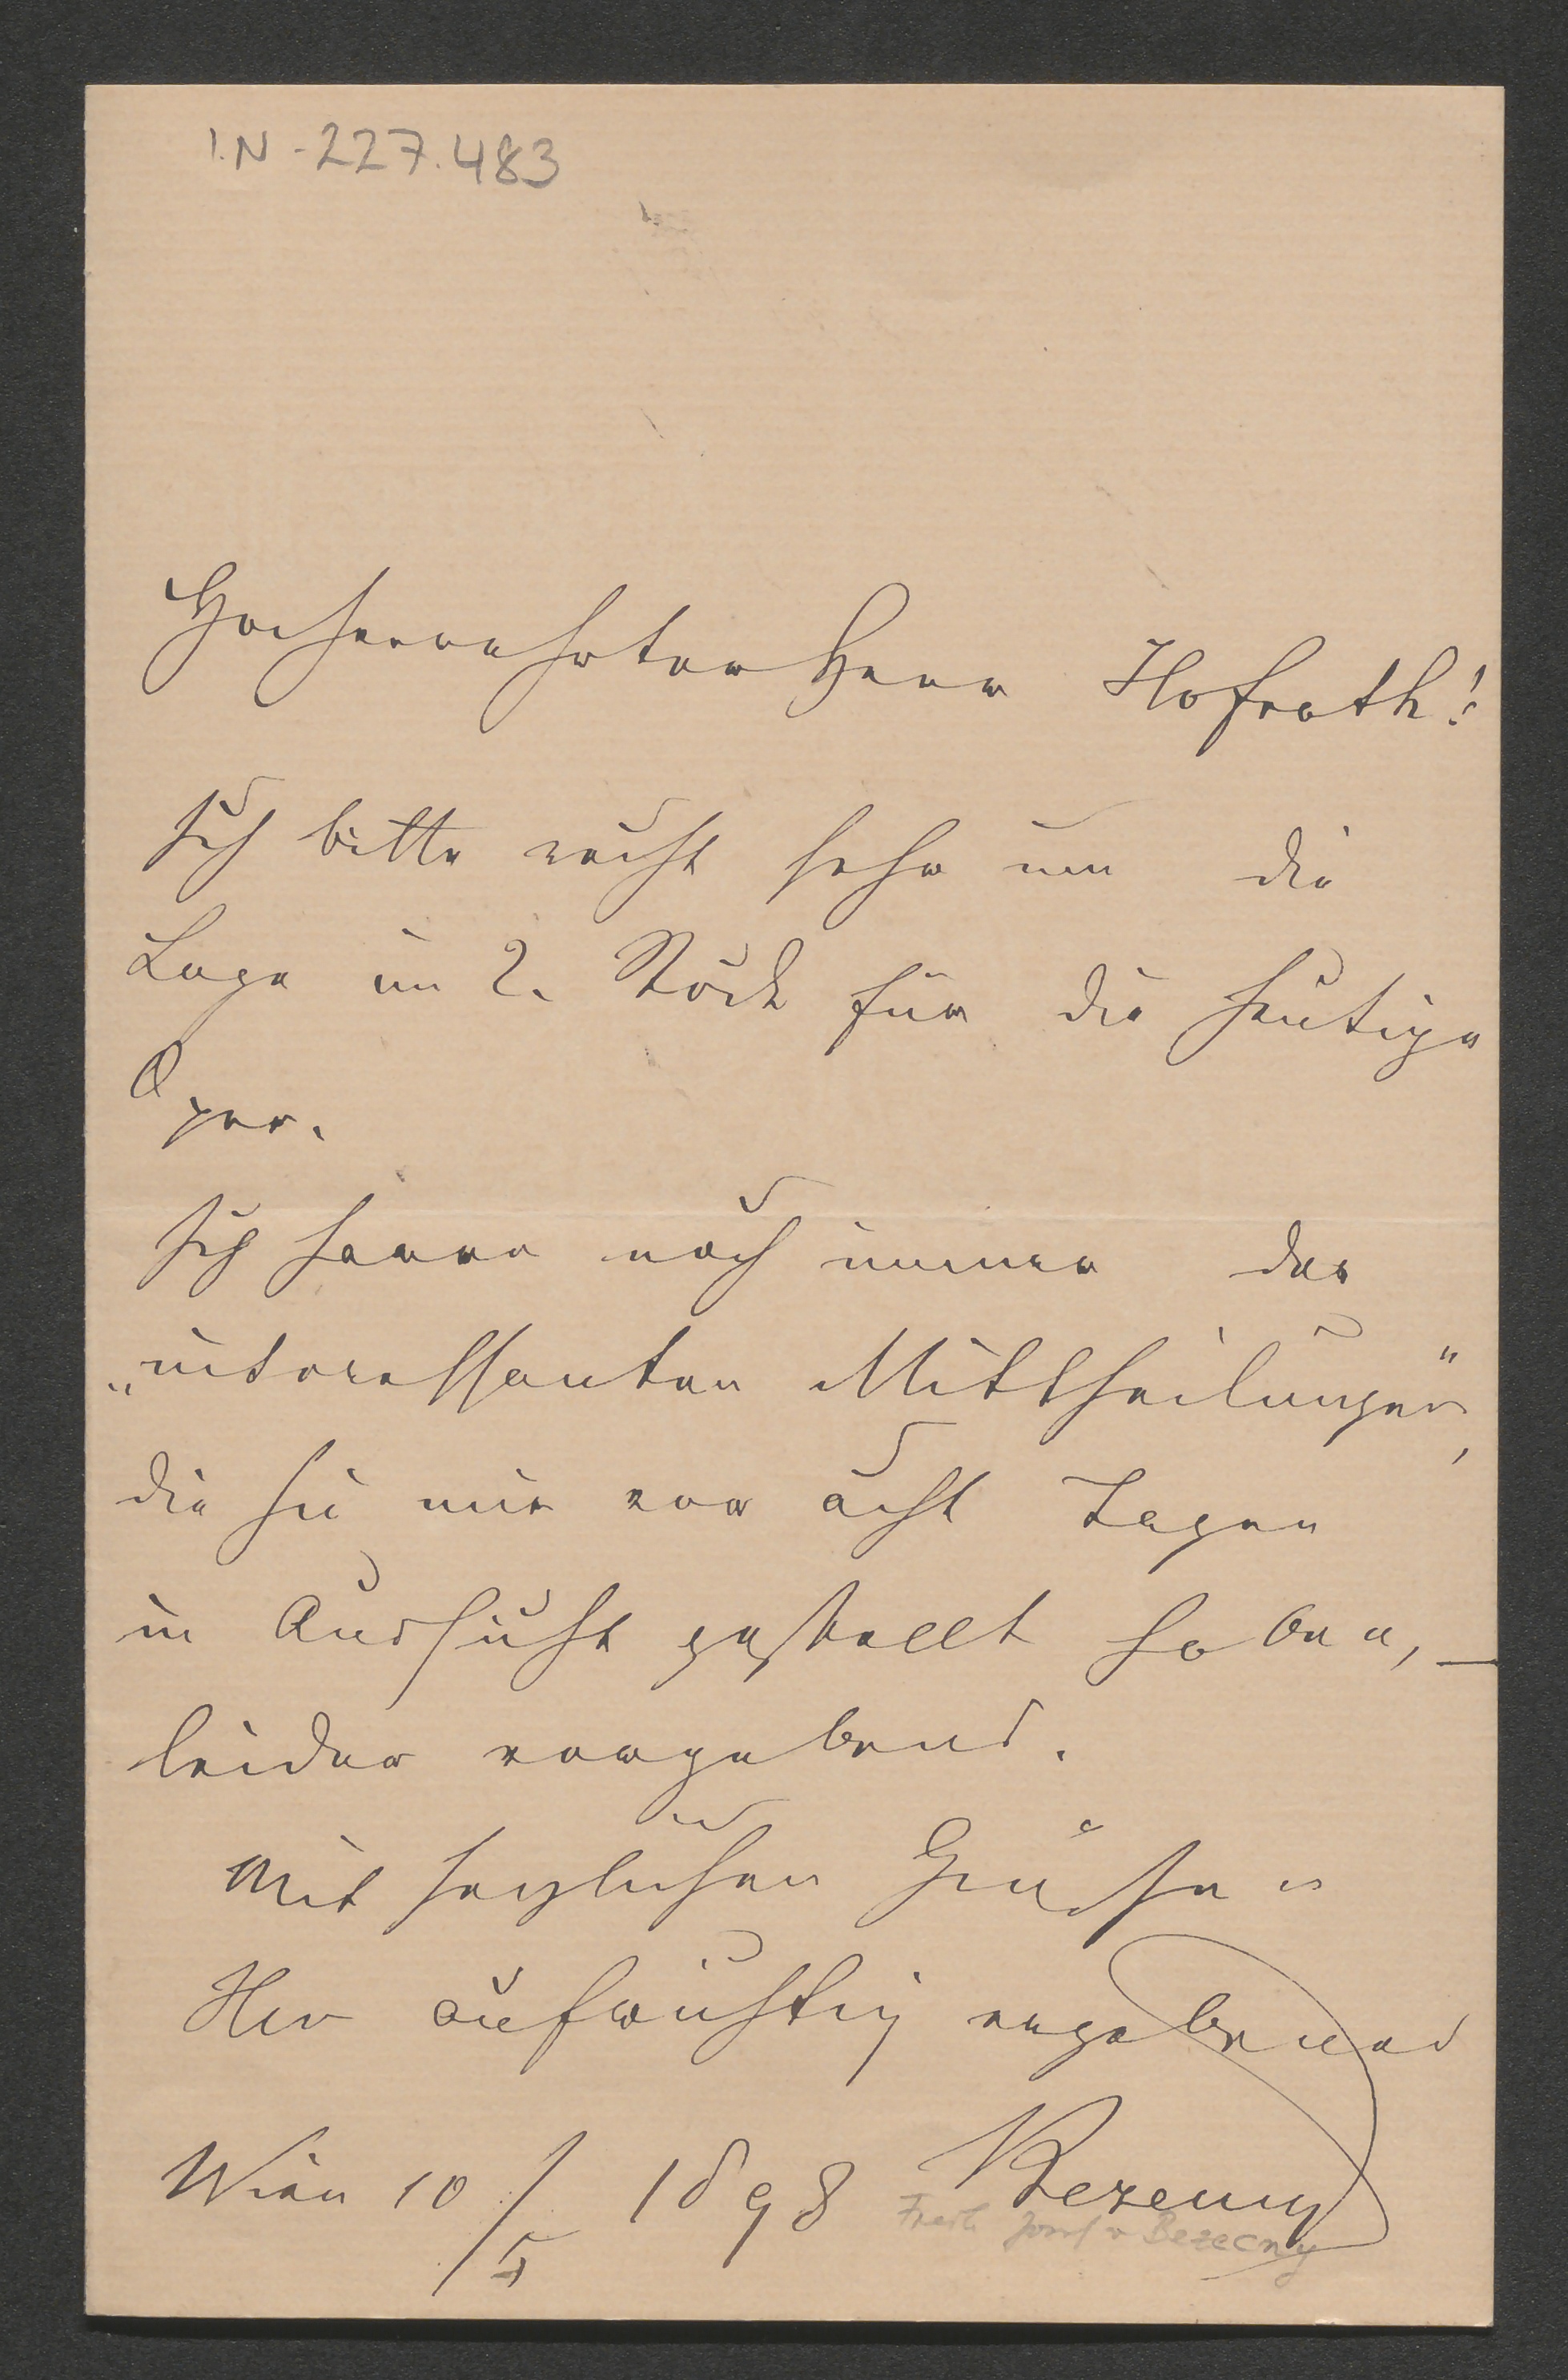 I.N - 227.483
Hochverehrter Herr Hofrath!
Ich bitte recht sehr um die
Loge im 2. Stock für die heutige
Oper.
Ich harre noch immer der
„interessanten Mittheilungen“,
die Sie mir vor acht Tagen
in Aussicht gestellt haben, —
leider vergebens.
Mit herzlichen Grüßen
Ihr aufrichtig ergebener
Wien 10/5 1898 Bezecny
Freih Josef v Bezecny